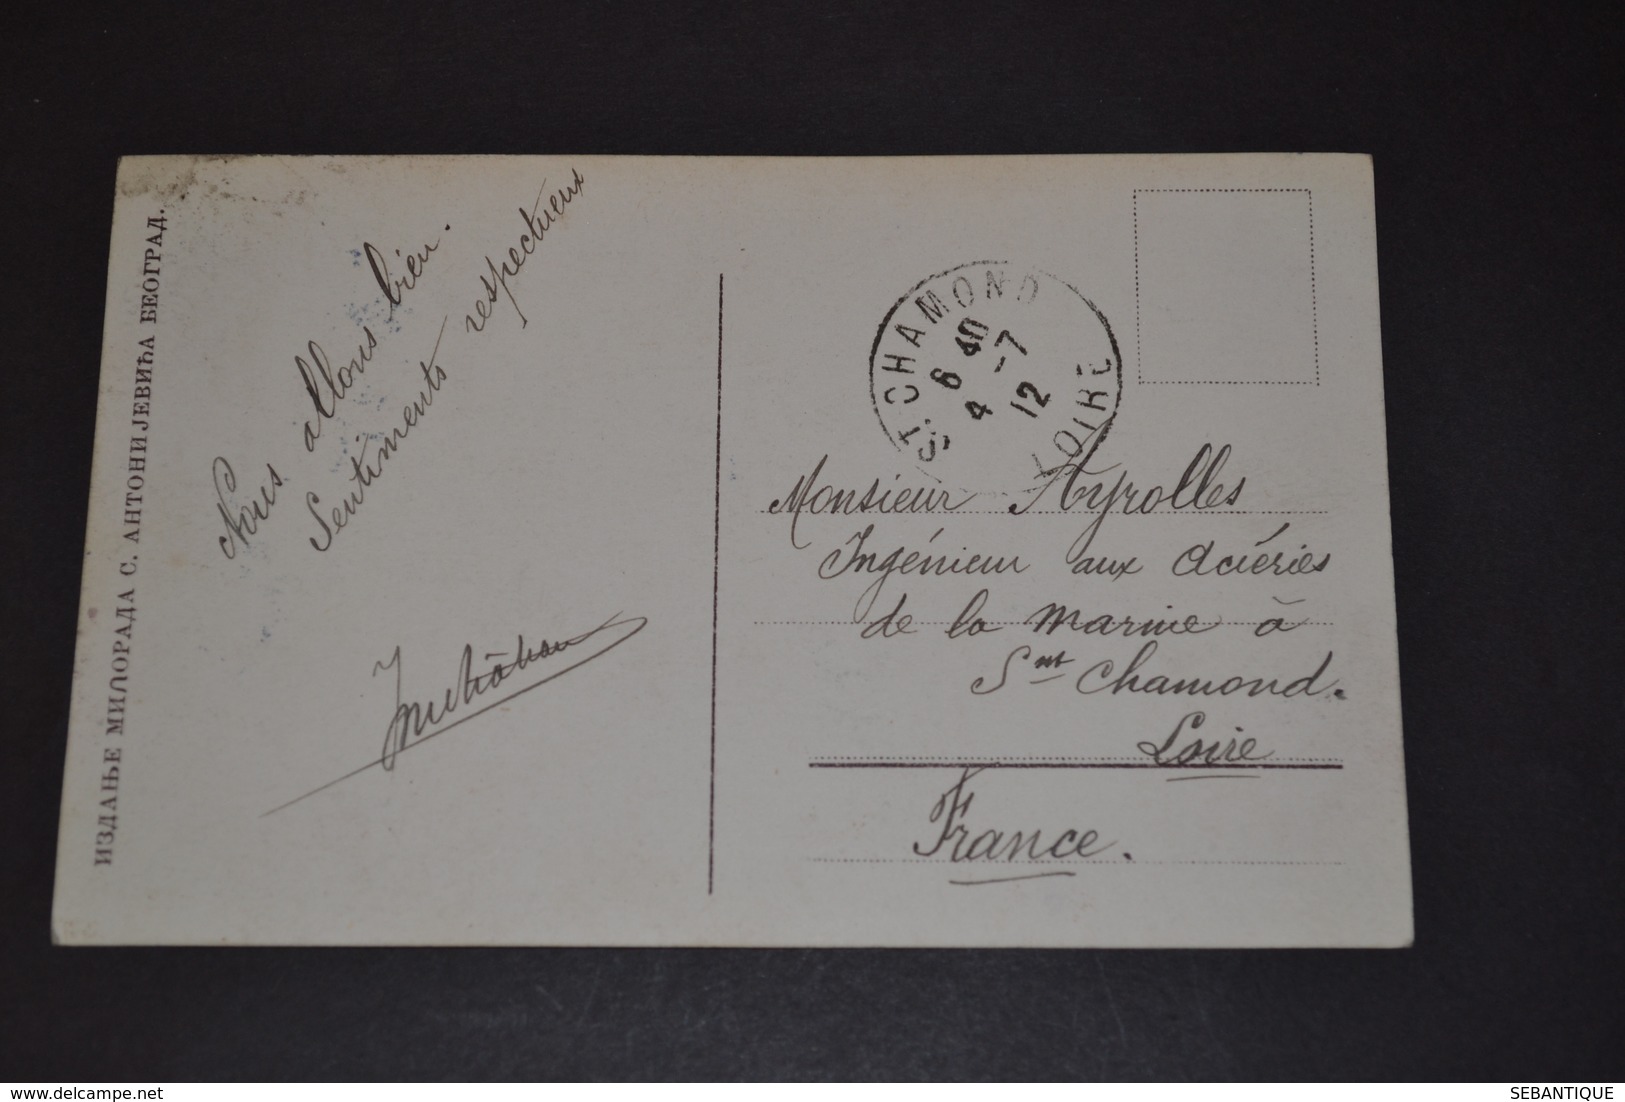 ИЗДАЊЕ МИЛОРАДА С. АНТОНИЈЕВИЋА БЕОГРАД.
Nous allons bien.
Sentiments respectueux
ST. CHAMOND
6 40
4 -7
12
LOIRE
Monsieur Ayrolles
Ingénieur aux Aciéries
de la Marine à
Snt Chamond.
Loire
France.
delcampe.net
SEBANTIQUE